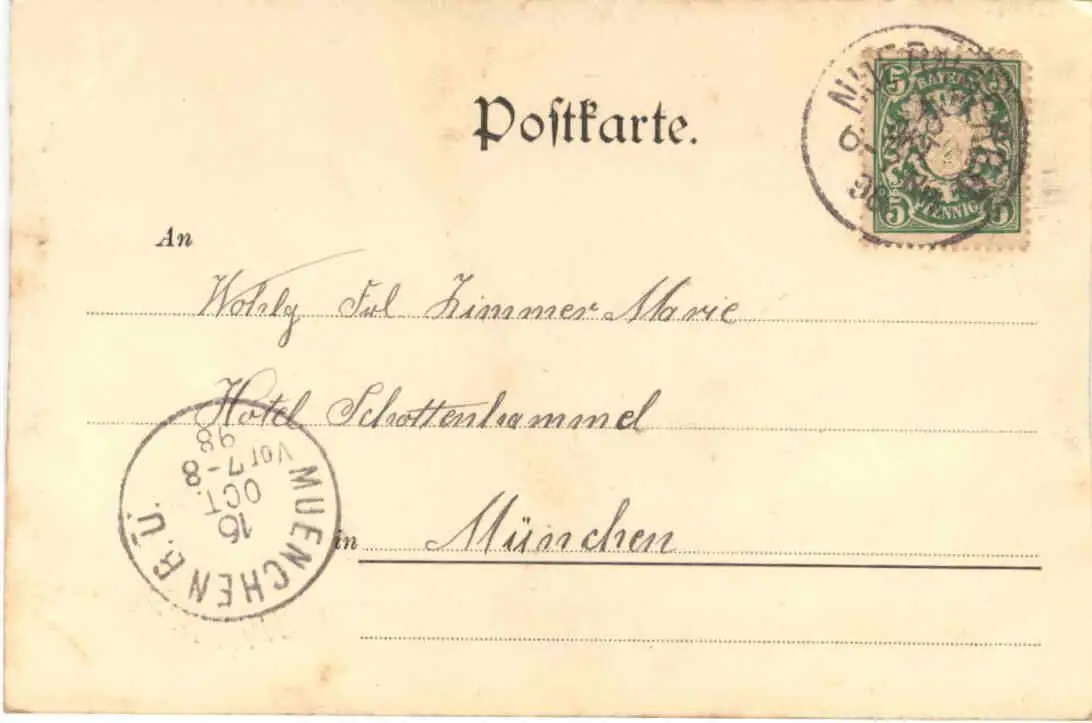 Postkarte.
5 BAYERN 5
NUERNBERG
98
5 PFENNIG 5
An
Wohlg Frl Zimmer Marie
Hotel Schottenhammel
in München
MUENCHEN B.Ü.
16
OCT.
Vor 7-8
98